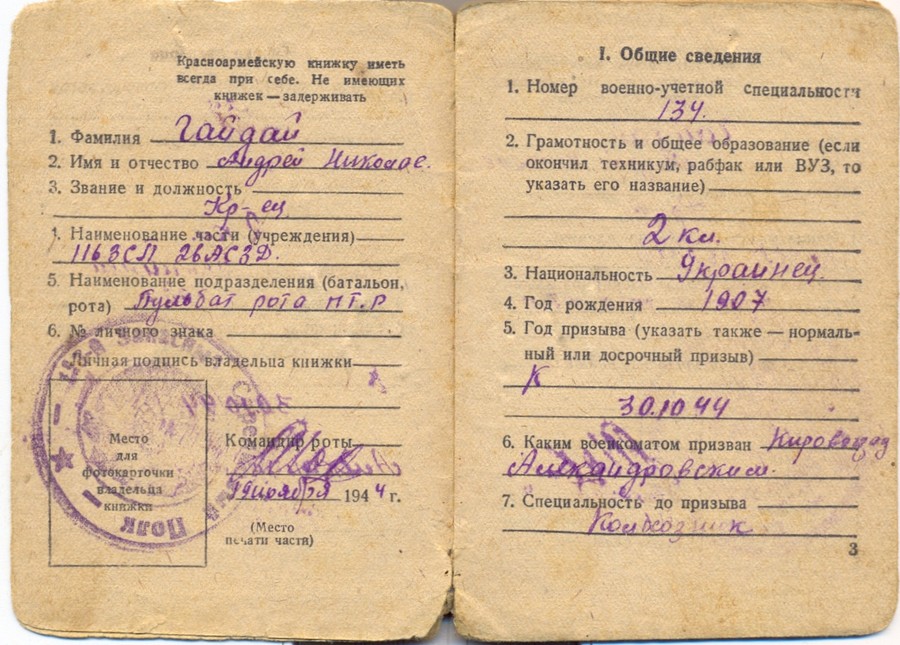 Красноармейскую книжку иметь
всегда при себе. Не имеющих
книжек — задерживать
1. Фамилия Гайдай
2. Имя и отчество Андрей Николае.
3. Звание и должность
Кр-ец
4. Наименование части (учреждения)
116ЗСП 26АСЗД.
5. Наименование подразделения (батальон,
рота) Пульбат рота ПТ.Р
6. № личного знака
Личная подпись владельца книжки
Место
для
фотокарточки
владельца
книжки
Полк
Командир роты
ноября 1944 г.
(Место
печати части)
I. Общие сведения
1. Номер военно-учетной специальности
134.
2. Грамотность и общее образование (если
окончил техникум, рабфак или ВУЗ, то
указать его название)
2 кл.
3. Национальность Украйнец
4. Год рождения 1907
5. Год призыва (указать также — нормаль-
ный или досрочный призыв)
К
30.10 44
6. Каким военкоматом призван Кировоград
Александровским.
7. Специальность до призыва
Колхозник
3